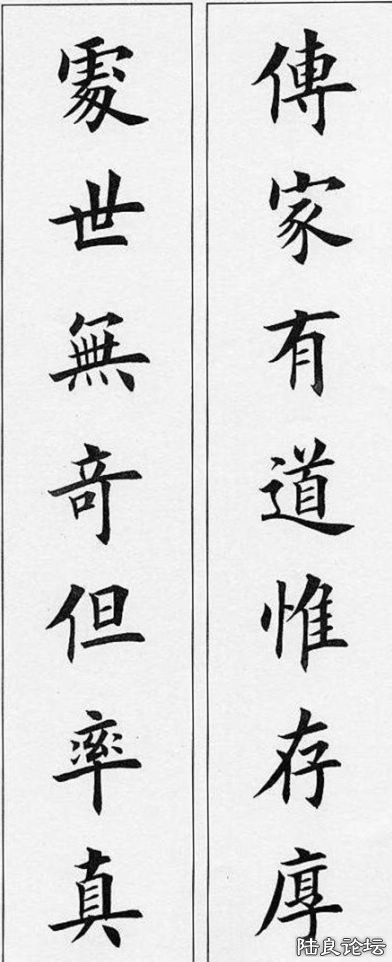 傳家有道惟存厚
處世無奇但率真
陆良论坛